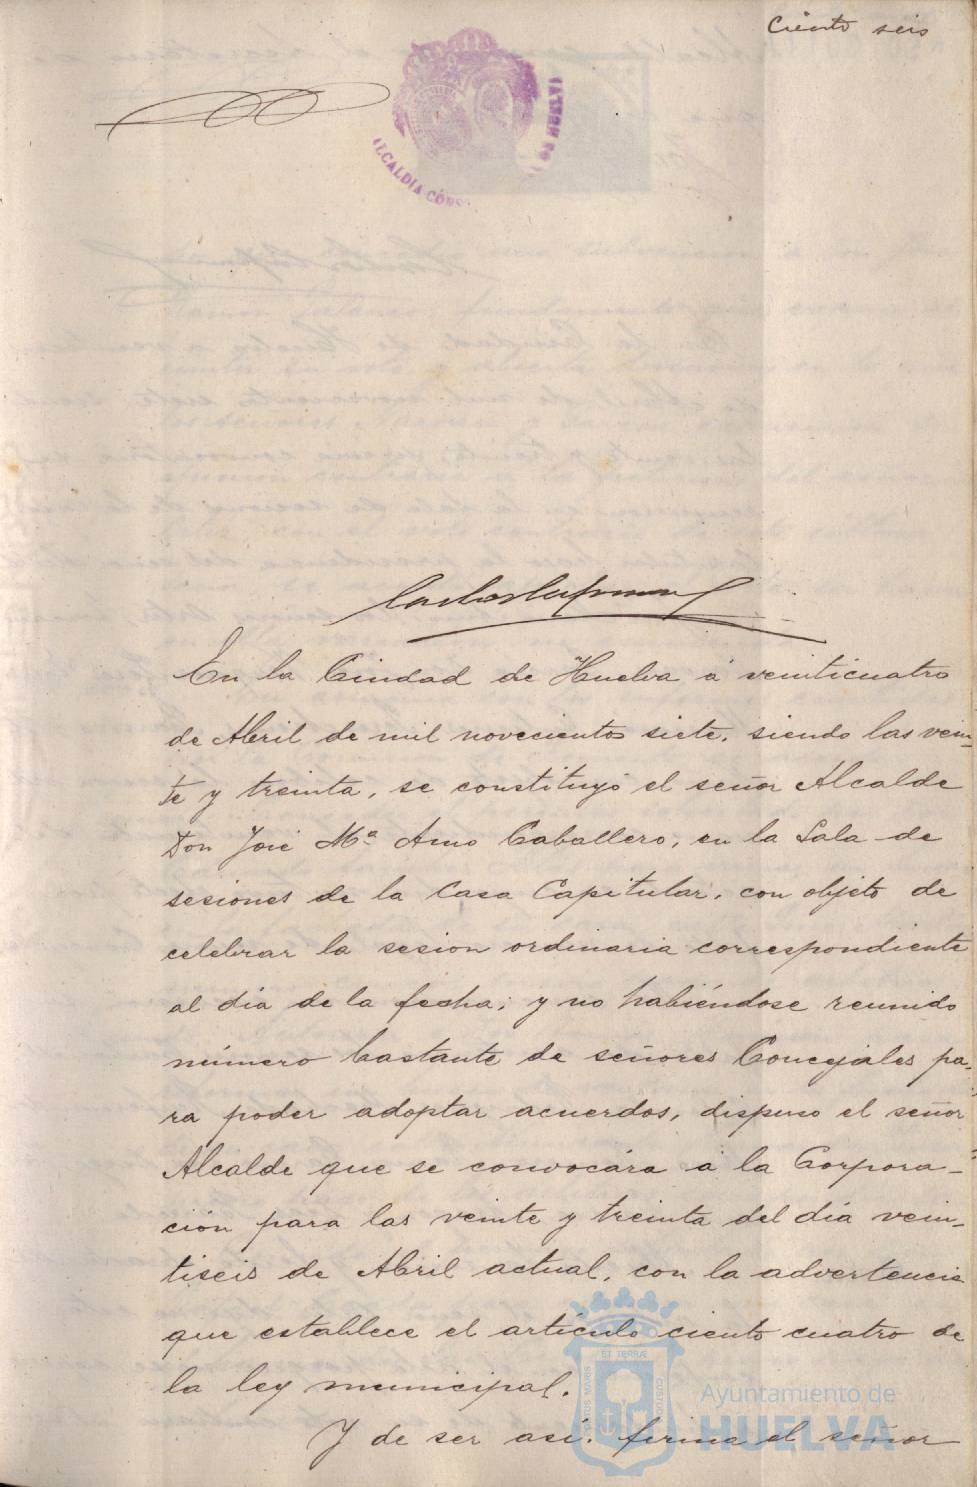 Ciento seis
ALCALDIA CONS
DE HUELVA
En la Ciudad de Huelva á veinticuatro
de Abril de mil novecientos siete, siendo las vein-
te y treinta, se constituyó el señor Alcalde
Don José Mª Amo Caballero, en la Sala de
sesiones de la Casa Capitular, con objeto de
celebrar la sesion ordinaria correspondiente
al día de la fecha; y no habiéndose reunido
número bastante de señores Concejales pa-
ra poder adoptar acuerdos, dispuso el señor
Alcalde que se convocára á la Corpora-
ción para las veinte y treinta del día vein-
tiseis de Abril actual, con la advertencia
que establece el artículo ciento cuatro de
la ley municipal.
Y de ser así, firma el señor
PORTUS MARIS ET TERRÆ CUSTODIA
Ayuntamiento de
HUELVA